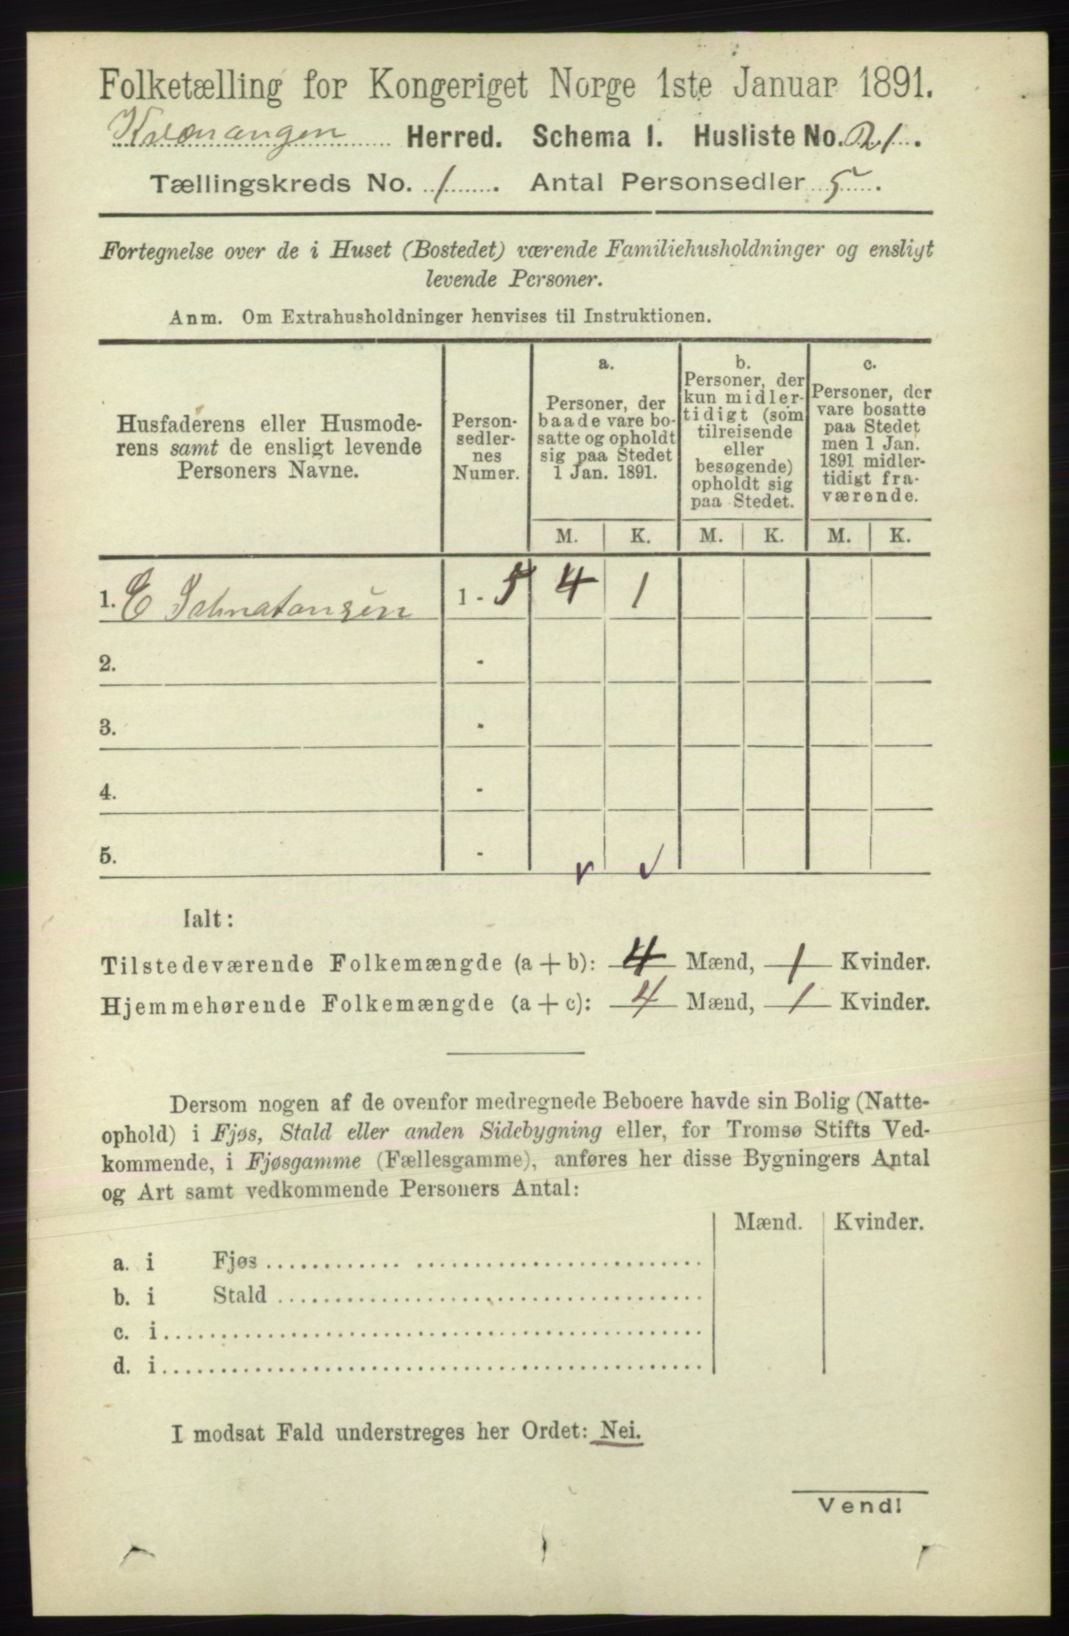 Folketælling for Kongeriget Norge 1ste Januar 1891.
Kvænangen Herred. Schema I. Husliste No. 21.
Tællingskreds No. 1. Antal Personsedler 5.
Fortegnelse over de i Huset (Bostedet) værende Familiehusholdninger og ensligt
levende Personer.
Anm. Om Extrahusholdninger henvises til Instruktionen.
Husfaderens eller Husmode-
rens samt de ensligt levende
Personers Navne.
Person-
sedler-
nes
Numer.
a.
Personer, der
baade vare bo-
satte og opholdt
sig paa Stedet
1 Jan. 1891.
b.
Personer, der
kun midler-
tidigt (som
tilreisende
eller
besøgende)
opholdt sig
paa Stedet.
c.
Personer, der
vare bosatte
paa Stedet
men 1 Jan.
1891 midler-
tidigt fra-
værende.
M. K. M. K. M. K.
1. E 1 - 5 4 1
2. -
3. -
4. -
5. -
Ialt:
Tilstedeværende Folkemængde (a + b): 4 Mænd, 1 Kvinder.
Hjemmehørende Folkemængde (a + c): 4 Mænd, 1 Kvinder.
Dersom nogen af de ovenfor medregnede Beboere havde sin Bolig (Natte-
ophold) i Fjøs, Stald eller anden Sidebygning eller, for Tromsø Stifts Ved-
kommende, i Fjøsgamme (Fællesgamme), anføres her disse Bygningers Antal
og Art samt vedkommende Personers Antal:
Mænd. Kvinder.
a. i Fjøs
b. i Stald
c. i
d. i
I modsat Fald understreges her Ordet: Nei.
Vend!